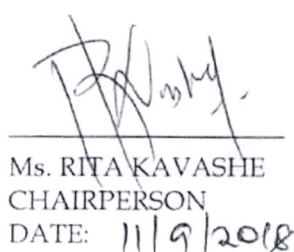 Ms. RITA KAVASHE
CHAIRPERSON
DATE: 11/9/2018